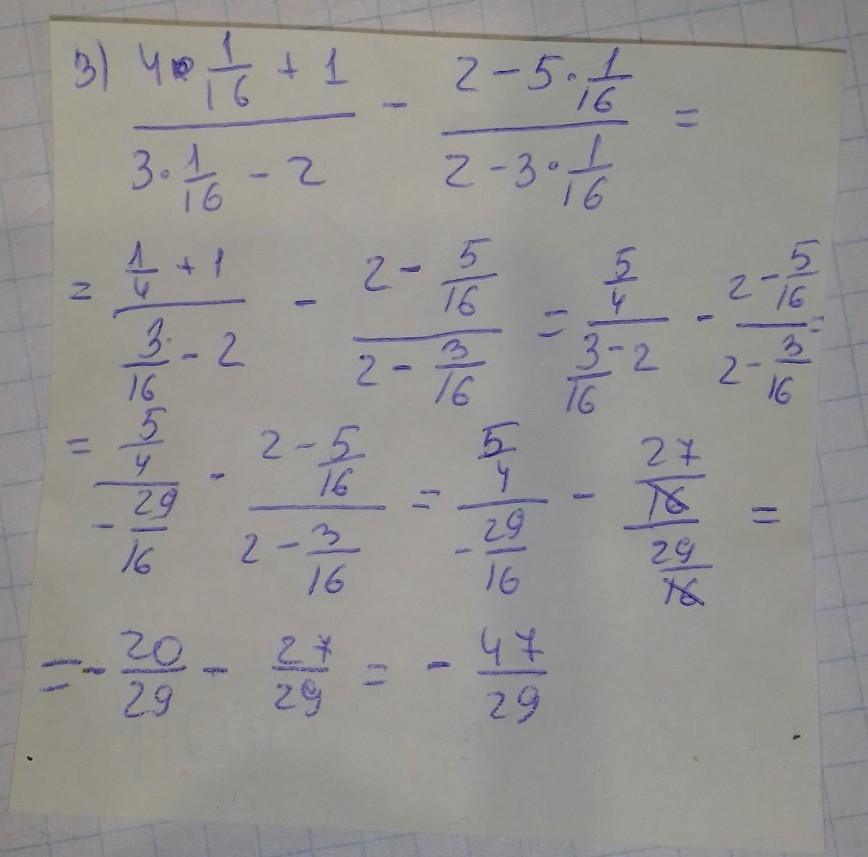 3) (4 · 1/16 + 1)/(3 · 1/16 - 2) - (2 - 5 · 1/16)/(2 - 3 · 1/16) =
= (1/4 + 1)/(3/16 - 2) - (2 - 5/16)/(2 - 3/16) = (5/4)/(3/16 - 2) - (2 - 5/16)/(2 - 3/16) =
= (5/4)/(-29/16) - (2 - 5/16)/(2 - 3/16) = (5/4)/(-29/16) - (27/16)/(29/16) =
= -20/29 - 27/29 = -47/29